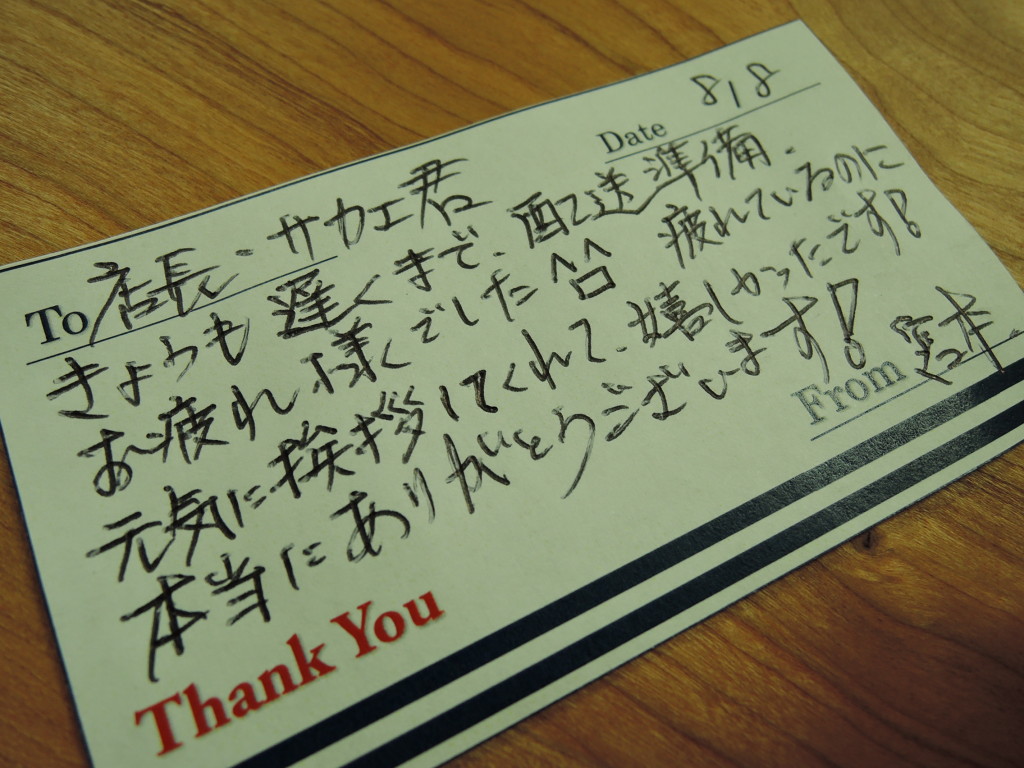 Date 8/8
To 店長・サカエ君
きょうも遅くまで、配送準備・
お疲れ様でした^^ 疲れているのに
元気に挨拶してくれて、嬉しかったです!
本当にありがとうございます!
From 宮本
Thank You